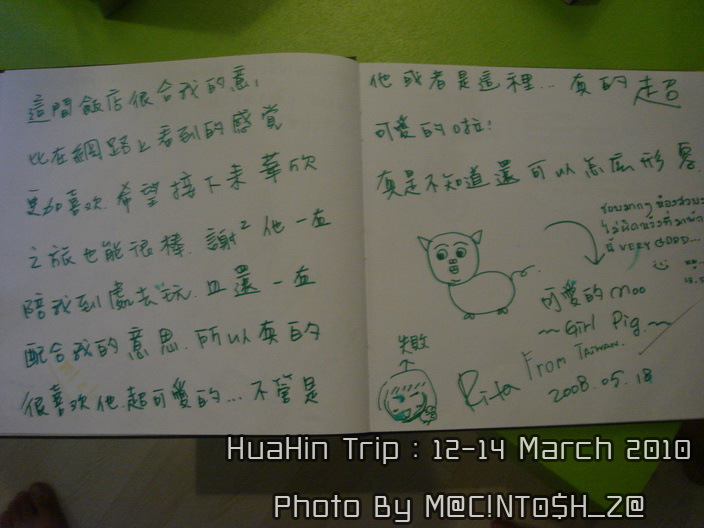 這間飯店很合我的意,
比在網路上看到的感覺
更加喜欢. 希望接下來華欣
之旅也能很棒. 謝² 他一直
陪我到處去玩. 且還一直
配合我的意思. 所以真的
很喜欢他. 超可愛的... 不管是
他或者是這裡... 真的超
可愛的啦!
真是不知道還可以怎麼形容.
ชอบมากๆ ห้องสวย
VERY GOOD...
可愛的 moo
~ Girl Pig. ~
失敗
Rita From TAIWAN.
2008.05.18
HuaHin Trip : 12-14 March 2010
Photo By M@C!NTO$H_Z@